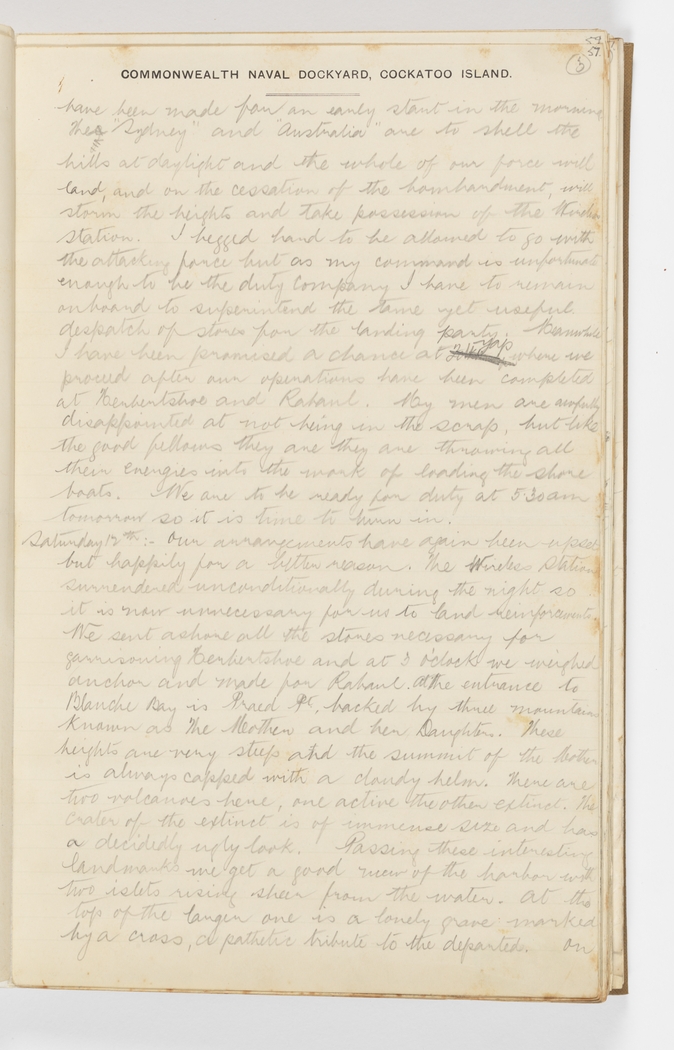 59
57.
5
COMMONWEALTH NAVAL DOCKYARD, COCKATOO ISLAND.
have been made for an early start in the morning
The "Sydney" and "Australia" are to shell the
hills at daylight and the whole of our force will
land, and on the cessation of the bombardment, will
storm the heights and take possession of the Wireless
station. I begged hard to be allowed to go with
the attacking force but as my command is unfortunate
enough to be the duty Company I have to remain
onboard to superintend the tame yet useful
despatch of stores for the landing party. Meanwhile
I have been promised a chance at Yap where we
proceed after our operations have been completed
at Herbertshoe and Rabaul. My men are awfully
disappointed at not being in the scrap, but like
the good fellows they are they are throwing all
their energies into the work of loading the shore
boats. We are to be ready for duty at 5 30 am
tomorrow so it is time to turn in.
Saturday 12th:- Our arrangements have again been upset
but happily for a better reason. The Wireless Station
surrendered unconditionally during the night so
it is now unnecessary for us to land reinforcements
We sent ashore all the stores necessary for
garrisoning Herbertshoe and at 3 o'clock we weighed
anchor and made for Rabaul. At the entrance to
Blanche Bay is Praed Pt, backed by three mountains
known as The Mother and her Daughters. These
heights are very steep and the summit of the Mother
is always capped with a cloudy helm. There are
two volcanoes here, one active the other extinct. The
crater of the extinct is of immense size and has
a decidedly ugly look. Passing these interesting
landmarks we get a good view of the harbor with
two islets rising sheer from the water. At the
top of the larger one is a lonely grave marked
by a cross, a pathetic tribute to the departed. On